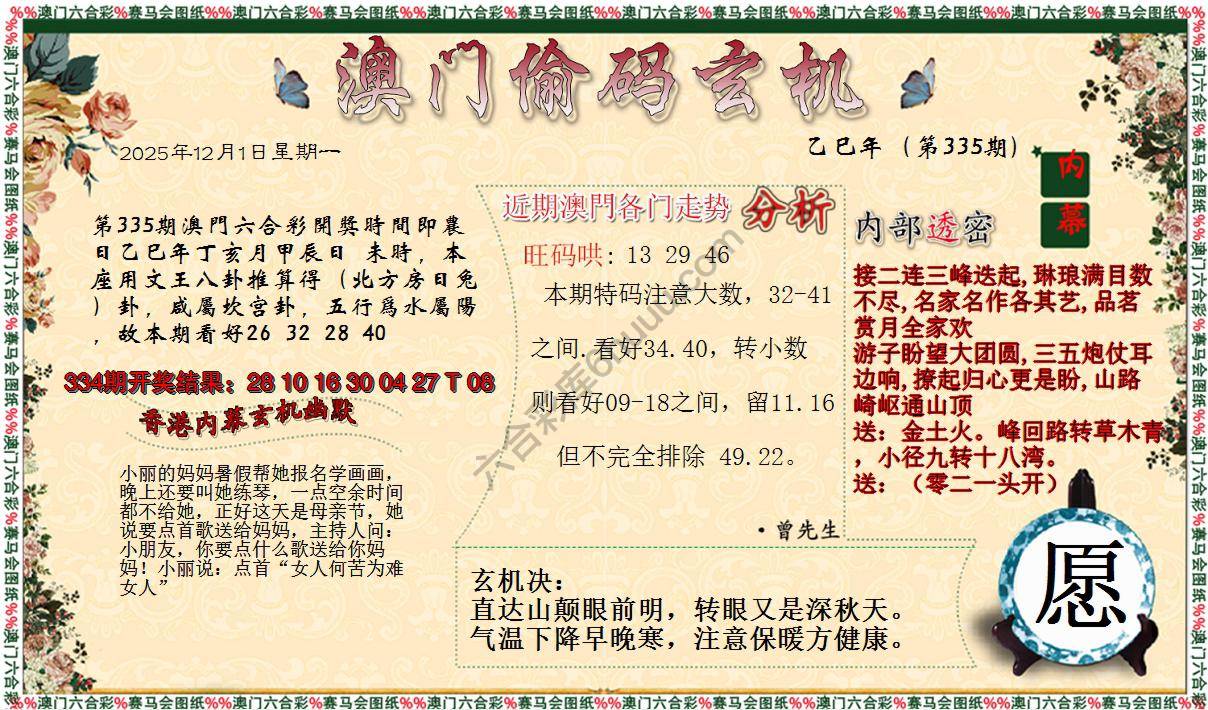 %%澳门六合彩%赛马会图纸%%澳门六合彩%赛马会图纸%%澳门六合彩%赛马会图纸%%澳门六合彩%赛马会图纸%%澳门六合彩%赛马会图纸%%澳门六合彩%赛马会图纸%%
澳门偷码玄机
2025年12月1日星期一
乙巳年（第335期）
内幕
第335期澳門六合彩開獎時間即農
日乙巳年丁亥月甲辰日 未時，本
座用文王八卦推算得（北方房日兔
）卦，咸屬坎宫卦，五行爲水屬陽
，故本期看好26 32 28 40
334期开奖结果：28 10 16 30 04 27 T 08
香港内幕玄机幽默
小丽的妈妈暑假帮她报名学画画，
晚上还要叫她练琴，一点空余时间
都不给她，正好这天是母亲节，她
说要点首歌送给妈妈，主持人问：
小朋友，你要点什么歌送给你妈
妈！小丽说：点首“女人何苦为难
女人”
近期澳門各门走势 分析
旺码哄: 13 29 46
本期特码注意大数，32-41
之间.看好34.40，转小数
则看好09-18之间，留11.16
但不完全排除 49.22。
·曾先生
内部透密
接二连三峰迭起,琳琅满目数
不尽,名家名作各其艺,品茗
赏月全家欢
游子盼望大团圆,三五炮仗耳
边响,撩起归心更是盼,山路
崎岖通山顶
送：金土火。峰回路转草木青
，小径九转十八湾。
送：（零二一头开）
玄机决：
直达山颠眼前明，转眼又是深秋天。
气温下降早晚寒，注意保暖方健康。
愿
%%澳门六合彩%赛马会图纸%%澳门六合彩%赛马会图纸%%澳门六合彩%赛马会图纸%%澳门六合彩%赛马会图纸%%澳门六合彩%赛马会图纸%%澳门六合彩%赛马会图纸%%